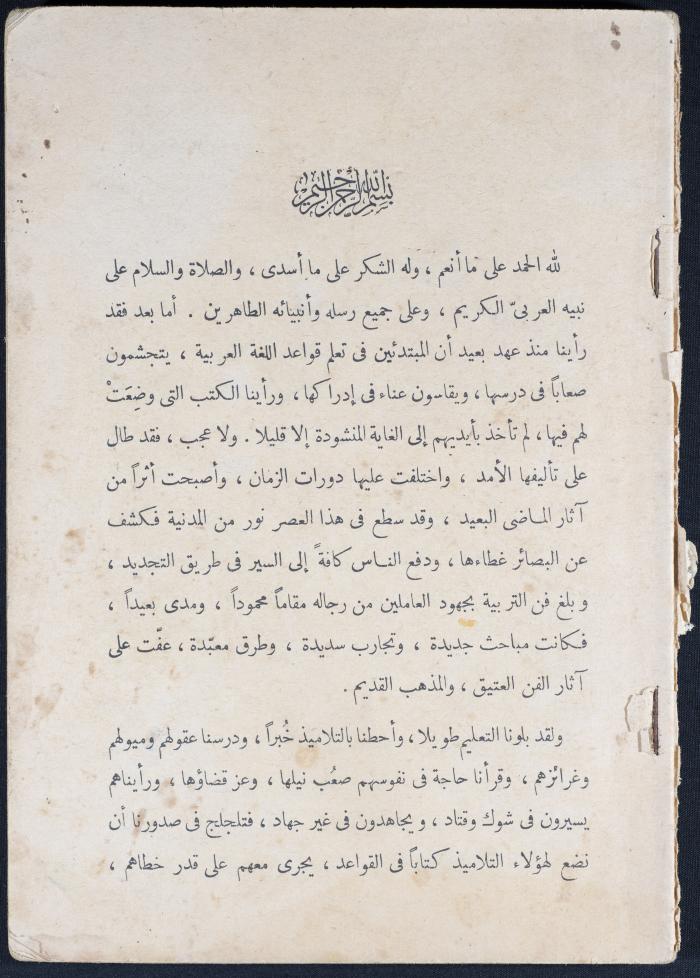 بسم الله الرحمن الرحيم
لله الحمد على ما أنعم ، وله الشكر على ما أسدى ، والصلاة والسلام على
نبيه العربىّ الكريم ، وعلى جميع رسله وأنبيائه الطاهرين . أما بعد فقد
رأينا منذ عهد بعيد أن المبتدئين فى تعلم قواعد اللغة العربية ، يتجشمون
صعاباً فى درسها ، ويقاسون عناء فى إدراكها ، ورأينا الكتب التى وضِعَتْ
لهم فيها ، لم تأخذ بأيديهم إلى الغاية المنشودة إلا قليلا . ولا عجب ، فقد طال
على تأليفها الأمد ، واختلفت عليها دورات الزمان ، وأصبحت أثراً من
آثار الماضى البعيد ، وقد سطع فى هذا العصر نور من المدنية فكشف
عن البصائر غطاءها ، ودفع الناس كافةً إلى السير فى طريق التجديد ،
وبلغ فن التربية بجهود العاملين من رجاله مقاماً محموداً ، ومدى بعيداً ،
فكانت مباحث جديدة ، وتجارب سديدة ، وطرق معبّدة ، عفّت على
آثار الفن العتيق ، والمذهب القديم .
ولقد بلونا التعليم طويلا ، وأحطنا بالتلاميذ خُبراً ، ودرسنا عقولهم وميولهم
وغرائزهم ، وقرأنا حاجة فى نفوسهم صعُب نيلها ، وعز قضاؤها ، ورأيناهم
يسيرون فى شوك وقتاد ، ويجاهدون فى غير جهاد ، فتلجلج فى صدورنا أن
نضع لهؤلاء التلاميذ كتاباً فى القواعد ، يجرى معهم على قدر خطاهم ،